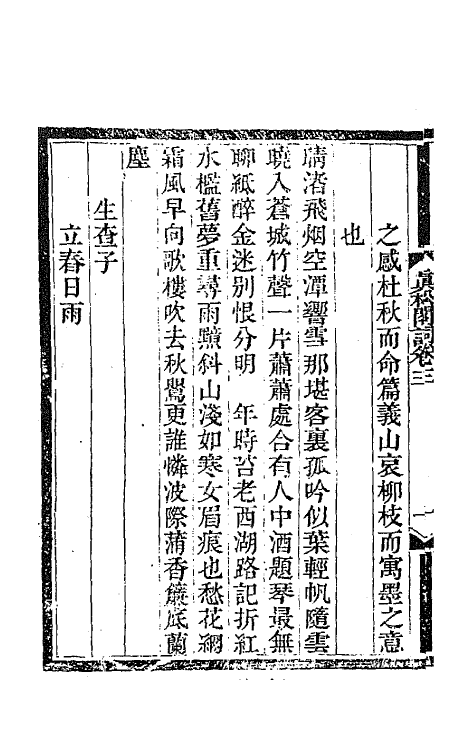 眞松閣詞卷三
一
之感杜秋而命篇義山哀柳枝而寓墨之意
也
晴渚飛烟空潭響雪那堪客裏孤吟似葉輕帆隨雲
曉入蒼城竹聲一片蕭蕭處合有人中酒題琴最無
聊紙醉金迷別恨分明　年時苔老西湖路記折紅
水檻舊夢重尋雨黦斜山淺如寒女眉痕也愁花網
霜風早向歌樓吹去秋鶯更誰憐波際蒲香簾底蘭
塵
生查子
立春日雨